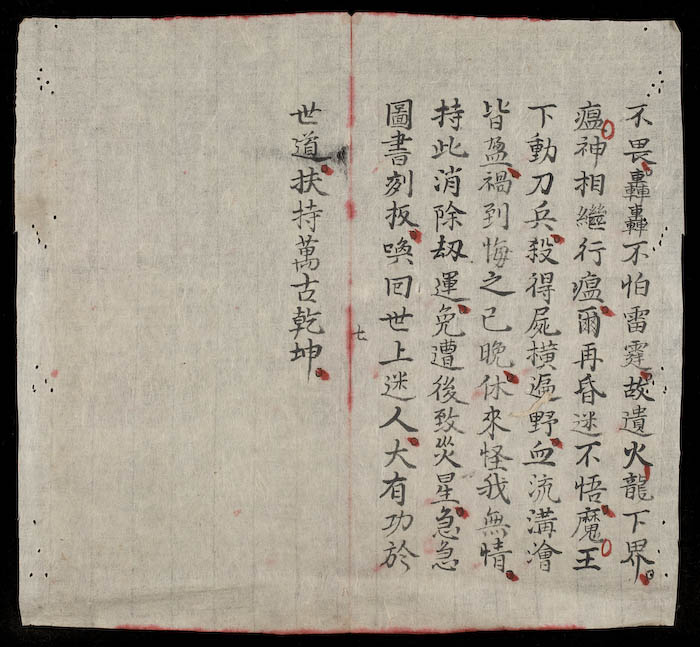 不畏轟轟不怕雷霆故遺火龍下界
瘟神相繼行瘟爾再昏迷不悟魔王
下動刀兵殺得屍橫遍野血流溝澮
皆盈禍到悔之已晚休來怪我無情
持此消除刼運免遭後致災星急急
圖書刻板喚回世上迷人大有功於
世道扶持萬古乾坤
七